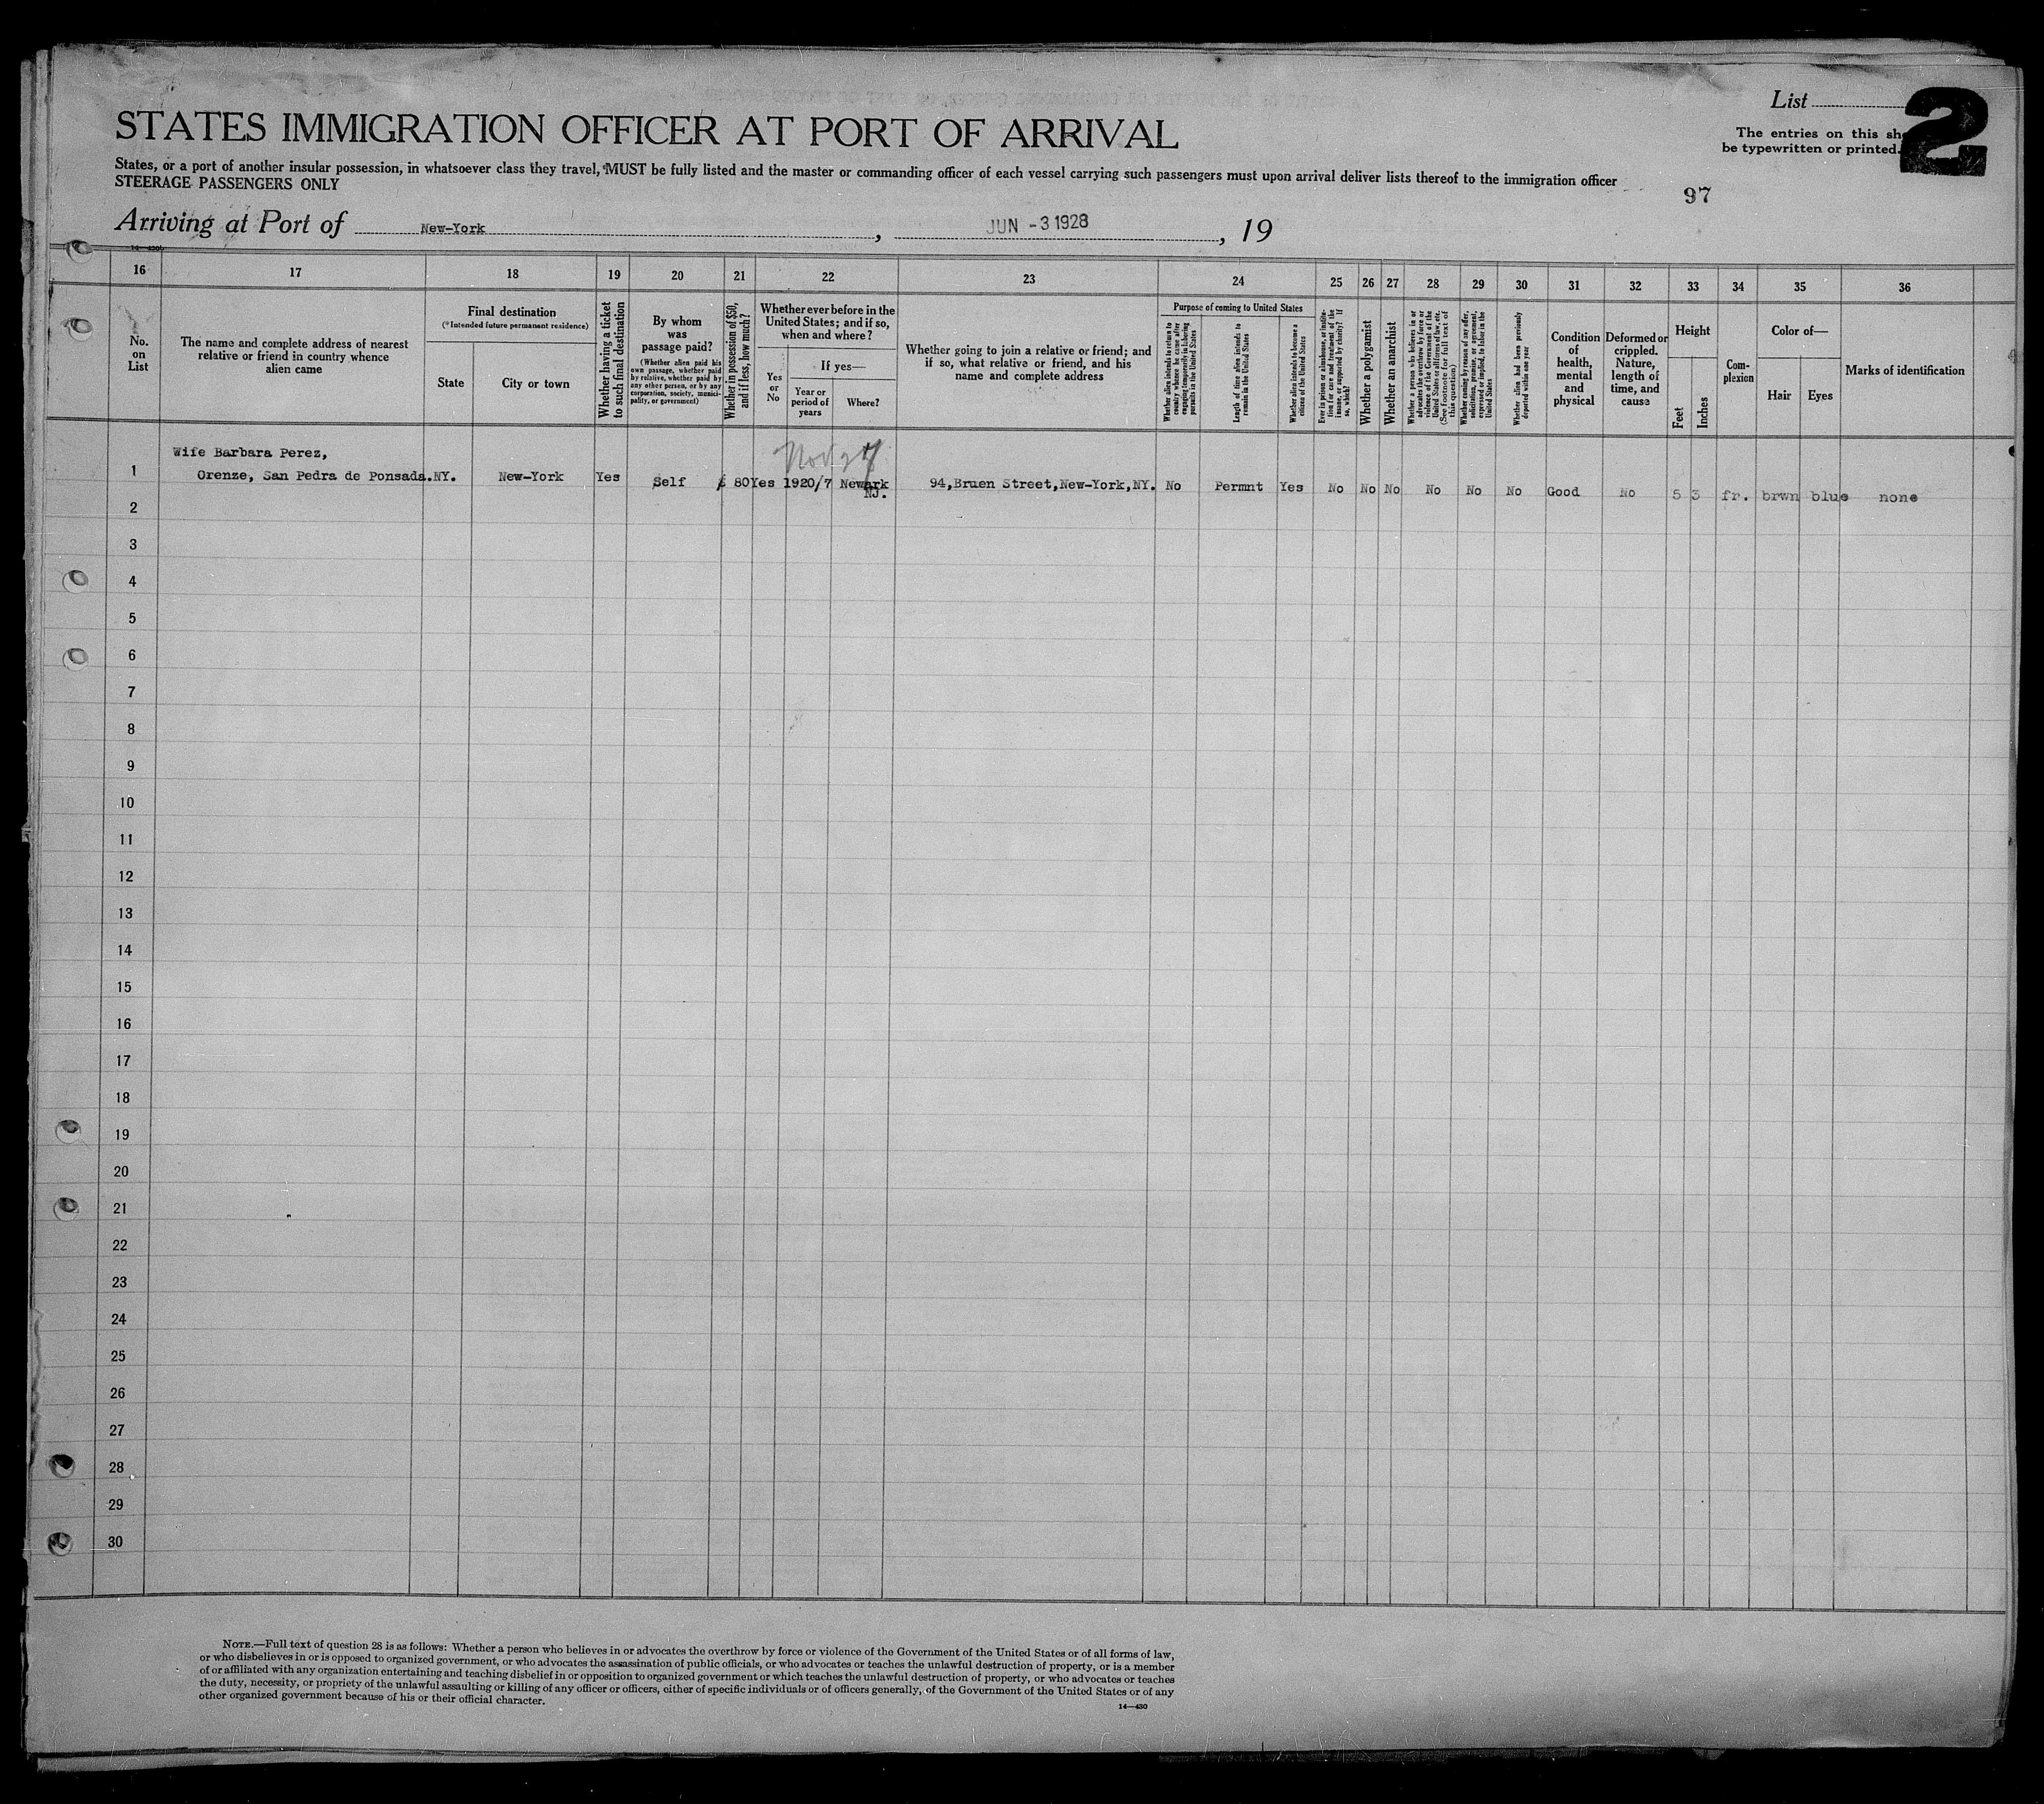 List
2
The entries on this sh
be typewritten or printed.
STATES IMMIGRATION OFFICER AT PORT OF ARRIVAL
States, or a port of another insular possession, in whatsoever class they travel, MUST be fully listed and the master or commanding officer of each vessel carrying such passengers must upon arrival deliver lists thereof to the immigration officer
STEERAGE PASSENGERS ONLY
97
Arriving at Port of New-York, JUN -3 1928, 19
14—430
16 17 18 19 20 21 22 23 24 25 26 27 28 29 30 31 32 33 34 35 36
No.
on
List
The name and complete address of nearest
relative or friend in country whence
alien came
Final destination
(*Intended future permanent residence)
State
City or town
Whether having a ticket
to such final destination
By whom
was
passage paid?
(Whether alien paid his
own passage, whether paid
by relative, whether paid by
any other person, or by any
corporation, society, munici-
pality, or government)
Whether in possession of $50,
and if less, how much?
Whether ever before in the
United States; and if so,
when and where?
Yes
or
No
If yes—
Year or
period of
years
Where?
Whether going to join a relative or friend; and
if so, what relative or friend, and his
name and complete address
Purpose of coming to United States
Whether alien intends to return to
country whence he came after
engaging temporarily in laboring
pursuits in the United States
Length of time alien intends to
remain in the United States
Whether alien intends to become a
citizen of the United States
Ever in prison or almshouse, or institu-
tion for care and treatment of the
insane, or supported by charity? If
so, which?
Whether a polygamist
Whether an anarchist
Whether a person who believes in or
advocates the overthrow by force or
violence of the Government of the
United States or all forms of law, etc.
(See footnote for full text of
this question)
Whether coming by reason of any offer,
solicitation, promise, or agreement,
expressed or implied, to labor in the
United States
Whether alien had been previously
deported within one year
Condition
of
health,
mental
and
physical
Deformed or
crippled.
Nature,
length of
time, and
cause
Height
Feet
Inches
Com-
plexion
Color of—
Hair
Eyes
Marks of identification
Nov 27
Wife Barbara Perez,
1 Orenze, San Pedra de Ponsada. NY. New-York Yes Self $ 80 Yes 1920/7 Newark 94, Bruen Street, New-York, NY. No Permnt Yes No No No No No No Good No 5 3 fr. brwn blue none
NJ.
2
3
4
5
6
7
8
9
10
11
12
13
14
15
16
17
18
19
20
21
22
23
24
25
26
27
28
29
30
NOTE.—Full text of question 28 is as follows: Whether a person who believes in or advocates the overthrow by force or violence of the Government of the United States or of all forms of law,
or who disbelieves in or is opposed to organized government, or who advocates the assassination of public officials, or who advocates or teaches the unlawful destruction of property, or is a member
of or affiliated with any organization entertaining and teaching disbelief in or opposition to organized government or which teaches the unlawful destruction of property, or who advocates or teaches
the duty, necessity, or propriety of the unlawful assaulting or killing of any officer or officers, either of specific individuals or of officers generally, of the Government of the United States or of any
other organized government because of his or their official character.
14—430